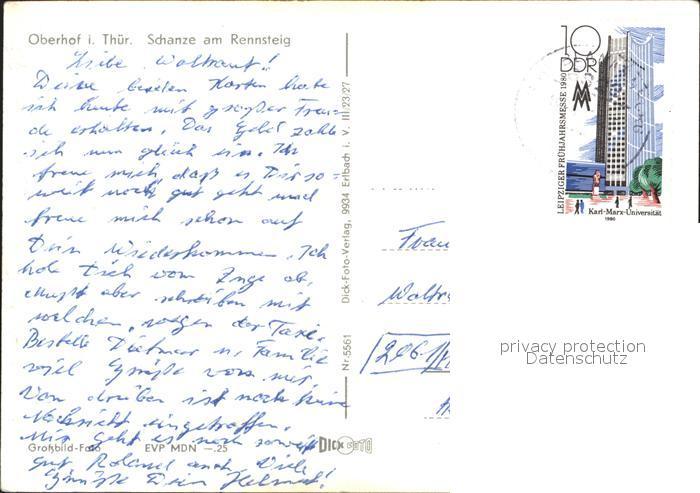 Oberhof i. Thür. Schanze am Rennsteig
Liebe Waltraut!
Deine beiden Karten habe
ich heute mit großer Freu-
de erhalten. Das Geld zahle
ich nun gleich ein. Ich
freue mich, daß es Dir so=
weit noch gut geht und
freue mich schon auf
Dein Wiederkommen. Ich
hole Dich vom Zuge ab,
mußt aber schreiben mit
welchem, wegen der Taxe.
Bestelle Dietmar u. Familie
viel Grüße von mir.
Von drüben ist noch keine
Nachricht eingetroffen.
Mir geht es noch soweit
gut, Roland auch. Viele
Grüße Dein Helmut!
Großbild-Foto EVP MDN —.25
DICK FOTO
Nr. 5561 Dick-Foto-Verlag, 9934 Erlbach i. V. III/23/27
10
DDR
MM
LEIPZIGER FRÜHJAHRSMESSE 1980
Karl-Marx-Universität
1980
Frau
Waltr
privacy protection
Datenschutz